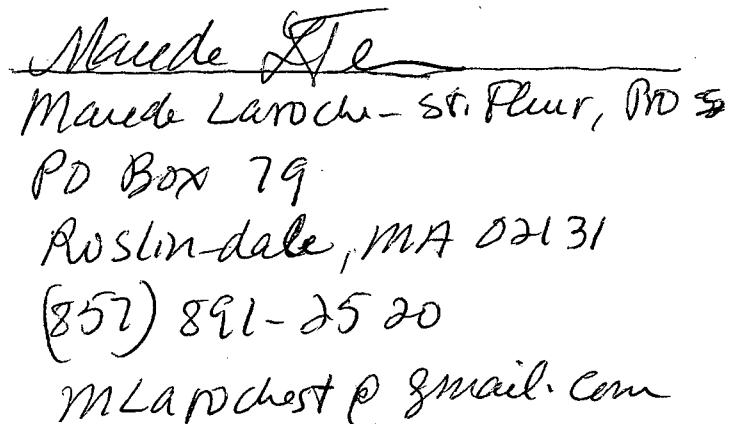 Maude
Maude Laroche-St. Fleur, Pro s
PO Box 79
Roslindale, MA 02131
(857) 891-2520
mLarochest@gmail.com